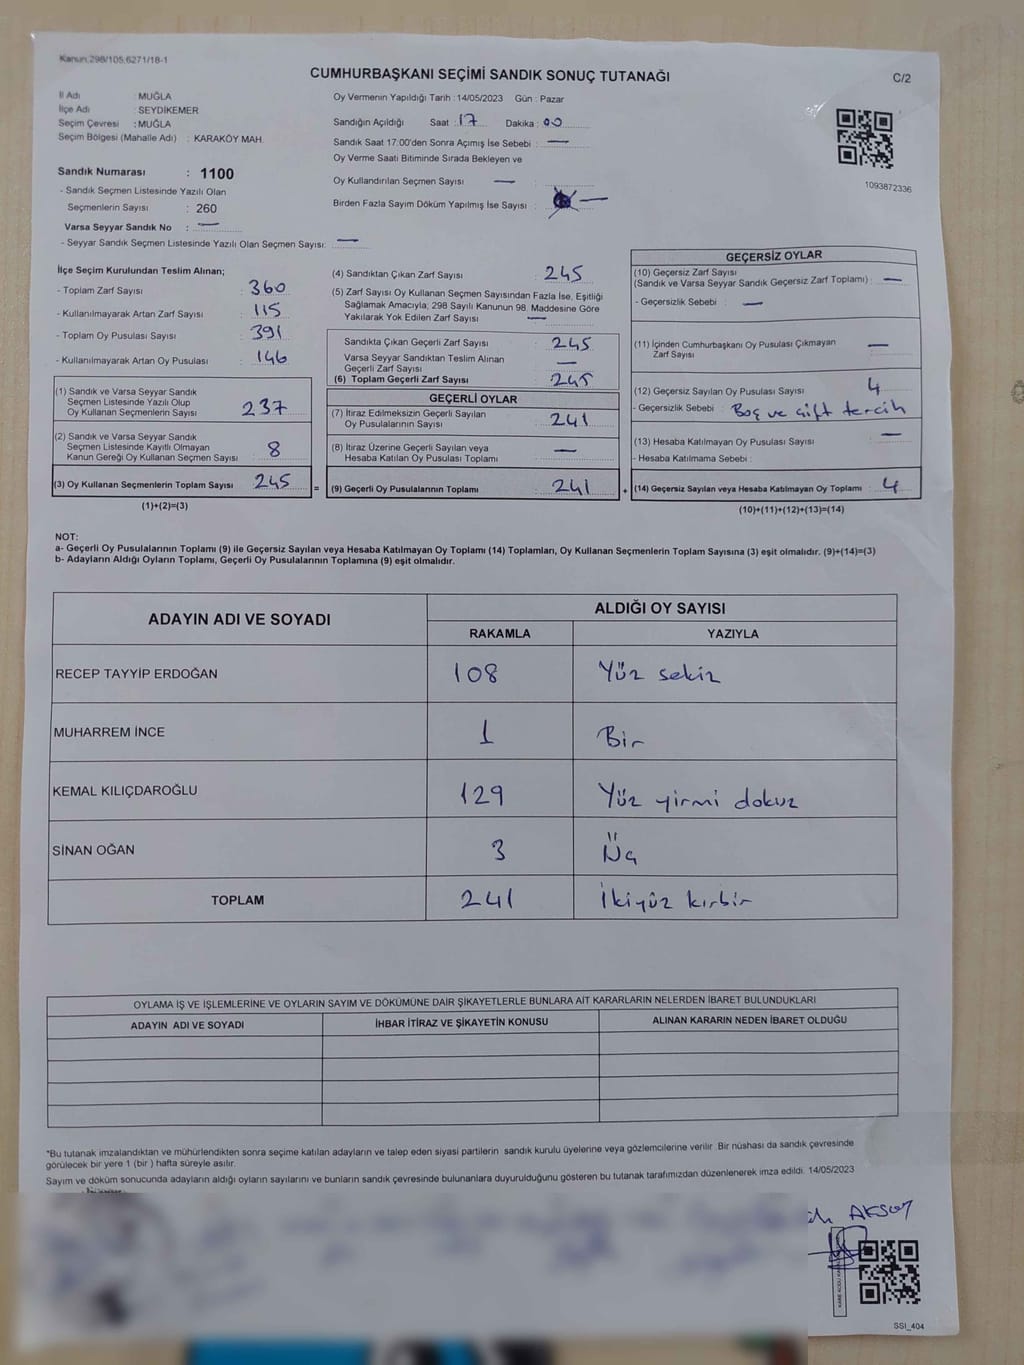 Kanun.298/105,6271/18-1
CUMHURBAŞKANI SEÇİMİ SANDIK SONUÇ TUTANAĞI
C/2
İl Adı : MUĞLA
İlçe Adı : SEYDİKEMER
Seçim Çevresi : MUĞLA
Seçim Bölgesi (Mahalle Adı) : KARAKÖY MAH.
Oy Vermenin Yapıldığı Tarih : 14/05/2023 Gün : Pazar
Sandığın Açıldığı Saat : 17 Dakika : 00
Sandık Saat 17:00'den Sonra Açımış İse Sebebi : —
Oy Verme Saati Bitiminde Sırada Bekleyen ve
Oy Kullandırılan Seçmen Sayısı —
Birden Fazla Sayım Döküm Yapılmış İse Sayısı : —
1093872336
Sandık Numarası : 1100
- Sandık Seçmen Listesinde Yazılı Olan
Seçmenlerin Sayısı : 260
Varsa Seyyar Sandık No : —
- Seyyar Sandık Seçmen Listesinde Yazılı Olan Seçmen Sayısı: —
İlçe Seçim Kurulundan Teslim Alınan;
- Toplam Zarf Sayısı : 360
- Kullanılmayarak Artan Zarf Sayısı : 115
- Toplam Oy Pusulası Sayısı : 391
- Kullanılmayarak Artan Oy Pusulası : 146
(1) Sandık ve Varsa Seyyar Sandık
Seçmen Listesinde Yazılı Olup
Oy Kullanan Seçmenlerin Sayısı : 237
(2) Sandık ve Varsa Seyyar Sandık
Seçmen Listesinde Kayıtlı Olmayan
Kanun Gereği Oy Kullanan Seçmen Sayısı : 8
(3) Oy Kullanan Seçmenlerin Toplam Sayısı : 245 =
(1)+(2)=(3)
(4) Sandıktan Çıkan Zarf Sayısı : 245
(5) Zarf Sayısı Oy Kullanan Seçmen Sayısından Fazla İse, Eşitliği
Sağlamak Amacıyla; 298 Sayılı Kanunun 98. Maddesine Göre
Yakılarak Yok Edilen Zarf Sayısı : —
Sandıkta Çıkan Geçerli Zarf Sayısı : 245
Varsa Seyyar Sandıktan Teslim Alınan
Geçerli Zarf Sayısı : —
(6) Toplam Geçerli Zarf Sayısı : 245
GEÇERLİ OYLAR
(7) İtiraz Edilmeksizin Geçerli Sayılan
Oy Pusulalarının Sayısı : 241
(8) İtiraz Üzerine Geçerli Sayılan veya
Hesaba Katılan Oy Pusulası Toplamı : —
(9) Geçerli Oy Pusulalarının Toplamı : 241 +
GEÇERSİZ OYLAR
(10) Geçersiz Zarf Sayısı
(Sandık ve Varsa Seyyar Sandık Geçersiz Zarf Toplamı) : —
- Geçersizlik Sebebi : —
(11) İçinden Cumhurbaşkanı Oy Pusulası Çıkmayan
Zarf Sayısı : —
(12) Geçersiz Sayılan Oy Pusulası Sayısı : 4
- Geçersizlik Sebebi : Boş ve çift tercih
(13) Hesaba Katılmayan Oy Pusulası Sayısı : —
- Hesaba Katılmama Sebebi :
(14) Geçersiz Sayılan veya Hesaba Katılmayan Oy Toplamı : 4
(10)+(11)+(12)+(13)=(14)
NOT:
a- Geçerli Oy Pusulalarının Toplamı (9) ile Geçersiz Sayılan veya Hesaba Katılmayan Oy Toplamı (14) Toplamları, Oy Kullanan Seçmenlerin Toplam Sayısına (3) eşit olmalıdır. (9)+(14)=(3)
b- Adayların Aldığı Oyların Toplamı, Geçerli Oy Pusulalarının Toplamına (9) eşit olmalıdır.
ADAYIN ADI VE SOYADI
ALDIĞI OY SAYISI
RAKAMLA YAZIYLA
RECEP TAYYİP ERDOĞAN 108 Yüz sekiz
MUHARREM İNCE 1 Bir
KEMAL KILIÇDAROĞLU 129 Yüz yirmi dokuz
SİNAN OĞAN 3 Üç
TOPLAM 241 İkiyüz kırbir
OYLAMA İŞ VE İŞLEMLERİNE VE OYLARIN SAYIM VE DÖKÜMÜNE DAİR ŞİKAYETLERLE BUNLARA AİT KARARLARIN NELERDEN İBARET BULUNDUKLARI
ADAYIN ADI VE SOYADI İHBAR İTİRAZ VE ŞİKAYETİN KONUSU ALINAN KARARIN NEDEN İBARET OLDUĞU
*Bu tutanak imzalandıktan ve mühürlendikten sonra seçime katılan adayların ve talep eden siyasi partilerin sandık kurulu üyelerine veya gözlemcilerine verilir. Bir nüshası da sandık çevresinde
görülecek bir yere 1 (bir ) hafta süreyle asılır.
Sayım ve döküm sonucunda adayların aldığı oyların sayılarını ve bunların sandık çevresinde bulunanlara duyurulduğunu gösteren bu tutanak tarafımızdan düzenlenerek imza edildi. 14/05/2023
AKSOY
SSI_404